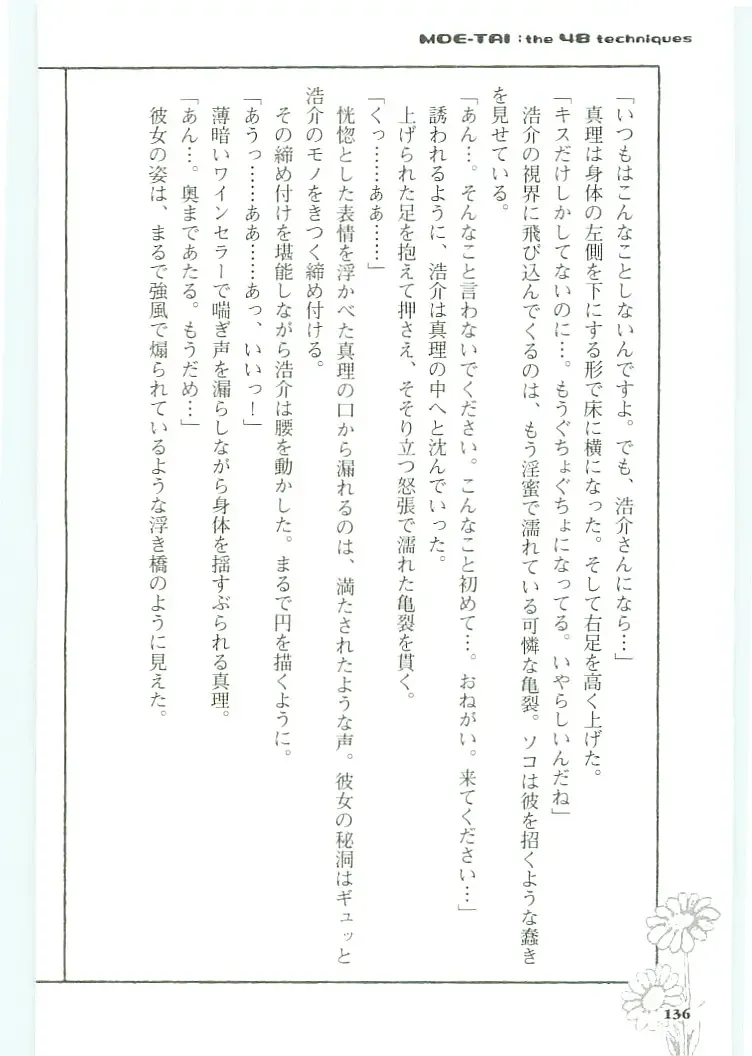 MOE-TAI : the 48 techniques
「いつもはこんなことしないんですよ。でも、浩介さんになら…」
真理は身体の左側を下にする形で床に横になった。そして右足を高く上げた。
「キスだけしかしてないのに…。もうぐちょぐちょになってる。いやらしいんだね」
浩介の視界に飛び込んでくるのは、もう淫蜜で濡れている可憐な亀裂。ソコは彼を招くような蠢き
を見せている。
「あん…。そんなこと言わないでください。こんなこと初めて…。おねがい。来てください…」
誘われるように、浩介は真理の中へと沈んでいった。
上げられた足を抱えて押さえ、そそり立つ怒張で濡れた亀裂を貫く。
「くっ……ああ……」
恍惚とした表情を浮かべた真理の口から漏れるのは、満たされたような声。彼女の秘洞はギュッと
浩介のモノをきつく締め付ける。
その締め付けを堪能しながら浩介は腰を動かした。まるで円を描くように。
「あうっ……ああ……あっ、いいっ！」
薄暗いワインセラーで喘ぎ声を漏らしながら身体を揺すぶられる真理。
「あん…。奥まであたる。もうだめ…」
彼女の姿は、まるで強風で煽られているような浮き橋のように見えた。
136